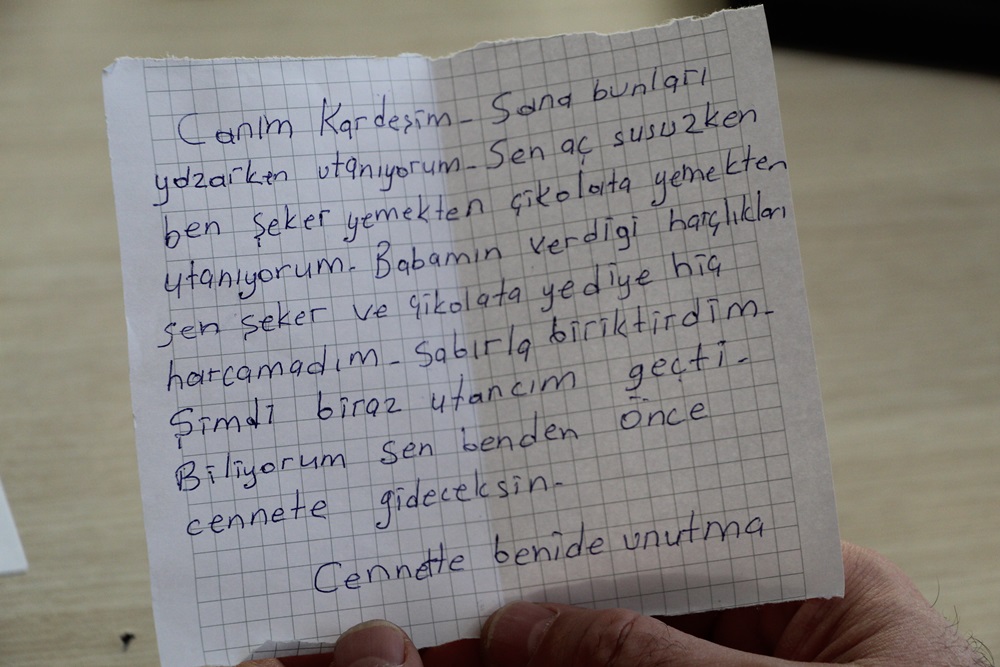 Canım Kardeşim- Sana bunları
yazarken utanıyorum- Sen aç susuzken
ben şeker yemekten çikolata yemekten
utanıyorum- Babamın verdiği harçlıkları
sen şeker ve çikolata yediye hiç
harcamadım- Sabırla biriktirdim-
Şimdi biraz utancım geçti-
Biliyorum sen benden önce
cennete gideceksin-
Cennette benide unutma